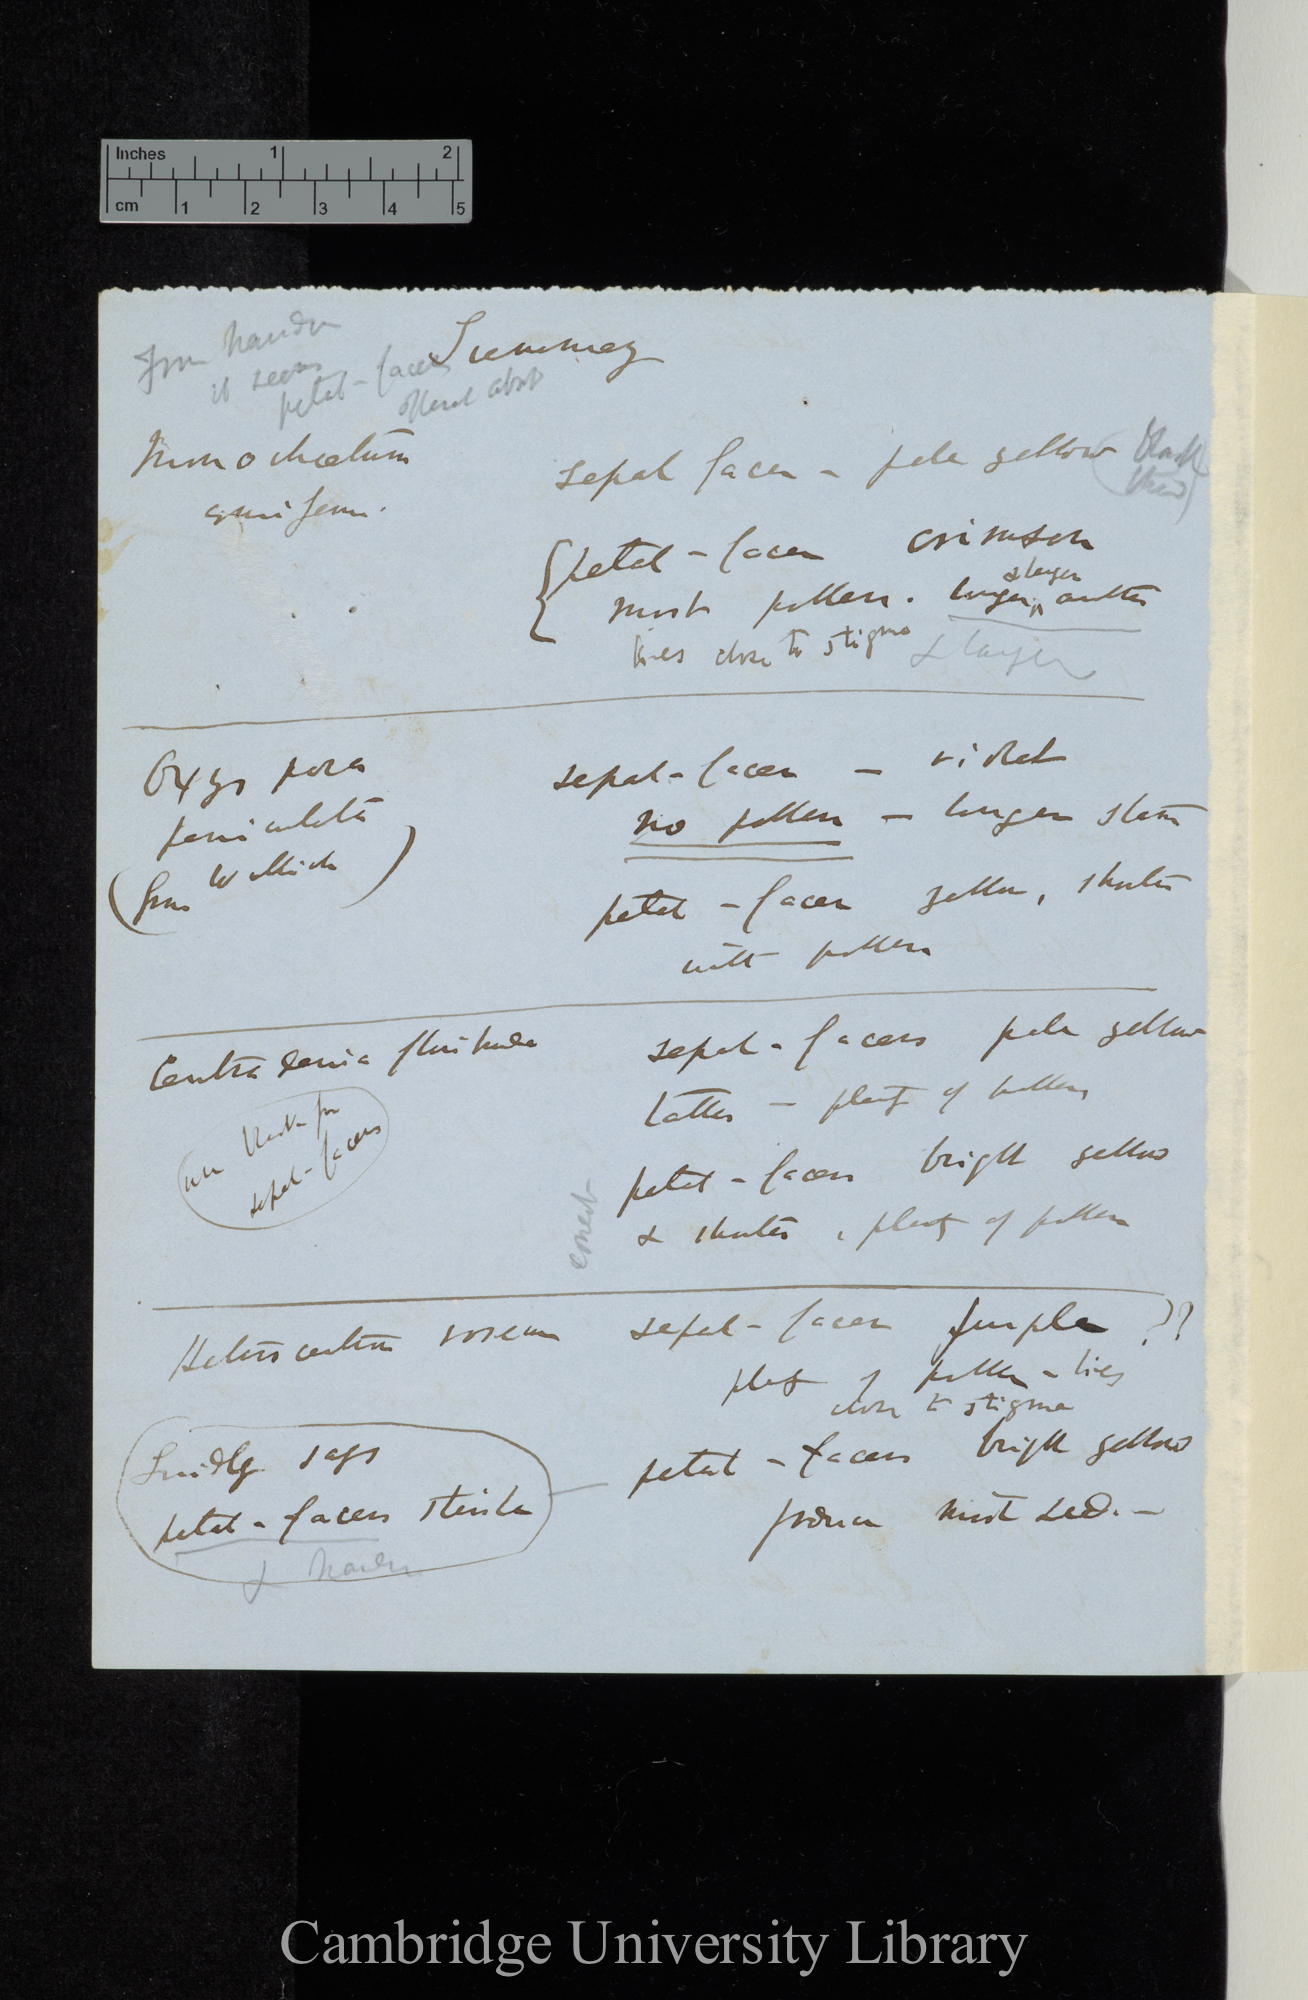 Inches 1 2
cm 1 2 3 4 5
Summary
From Naudin
it seems
petal-facers
often abort
Monochætum
ensiferum.
sepal facer – pale yellow (black
thread)
petal-facer crimson
most pollen. longer & larger anther
lies close to stigma & larger
Oxyspora
paniculata
(from Wallich)
sepal-facer – violet
no pollen – longer stam
petal-facer yellow, shorter
with pollen
Centradenia floribunda
use black for
sepal-facers
sepal-facers pale yellow
latter – plenty of pollen
petal-facers bright yellow
& shorter, plenty of pollen
correct
Heterocentron roseum
sepal-facer purple ??
plenty of pollen – lies
close to stigma
Lindley says
petal-facers sterile
& Naudin
petal-facers bright yellow
produce most seed. –
Cambridge University Library